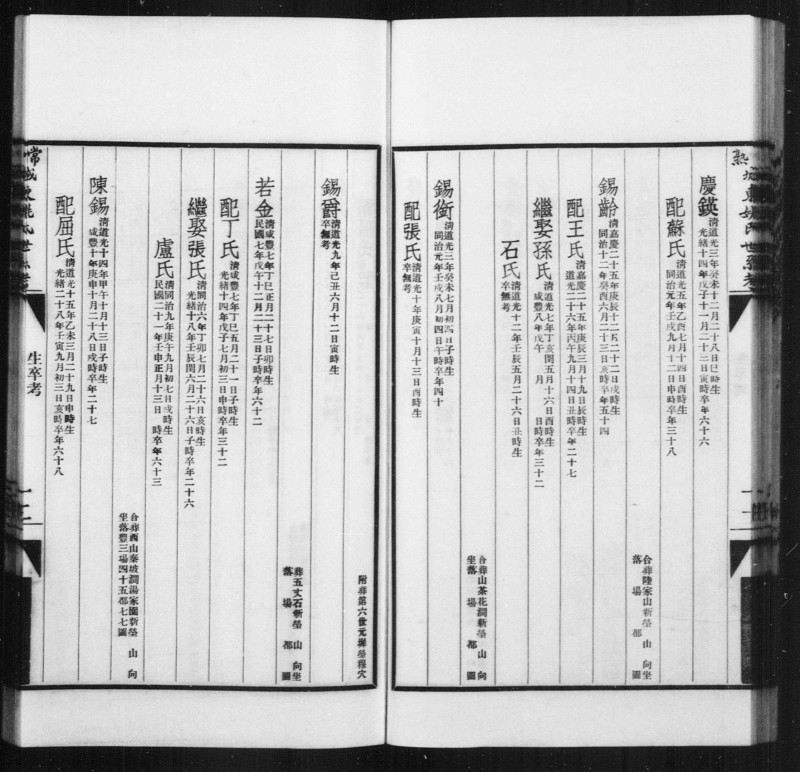 慶鍈 清道光三年癸未十二月二十八日巳時生
光緒十四年戊子十一月二十三日寅時卒年六十六
配蘇氏 清道光五年乙酉七月十四日酉時生
同治元年壬戌九月十二日申時卒年三十八
合葬陸家山新塋 山 向坐
落 場 都 圖
錫齡 清嘉慶二十五年庚辰十二月二十二日戌時生
同治十二年癸酉六月二十三日亥時卒年五十四
配王氏 清嘉慶二十五年庚辰三月十九日辰時生
道光二十六年丙午九月十四日丑時卒年二十七
繼娶孫氏 清道光七年丁亥閏五月十六日酉時生
咸豐八年戊午 月 日時卒年三十二
石氏 清道光十二年壬辰五月二十六日丑時生
卒無考
合葬山茶花澗新塋 山 向
坐落 場 都 圖
錫銜 清道光三年癸未七月初四日子時生
同治元年壬戌八月初四日午時卒年四十
配張氏 清道光十年庚寅十月十三日酉時生
卒無考
常熟
生卒考
錫爵 清道光九年己丑六月十二日寅時生
卒無考
附葬第六世元 塋穆穴
若金 清咸豐七年丁巳正月二十七日卯時生
民國七年戊午十二月二十三日子時卒年六十二
葬五丈石新塋 山 向坐
落 場 都 圖
配丁氏 清咸豐七年丁巳五月二十一日子時生
光緒十四年戊子七月初三日申時卒年三十二
繼娶張氏 清同治六年丁卯七月二十六日亥時生
光緒十八年壬辰閏六月二十六日子時卒年二十六
盧氏 清同治九年庚午九月初七日戌時生
民國二十一年壬申正月十三日 時卒年六十三
合葬西山秦坡澗湯家園新塋 山 向
坐落豐三場四十五都七七圖
陳錫 清道光十四年甲午十月十三日子時生
咸豐十年庚申十月二十八日戌時卒年二十七
配屈氏 清道光十五年乙未三月二十九日申時生
光緒二十八年壬寅九月初三日亥時卒年六十八